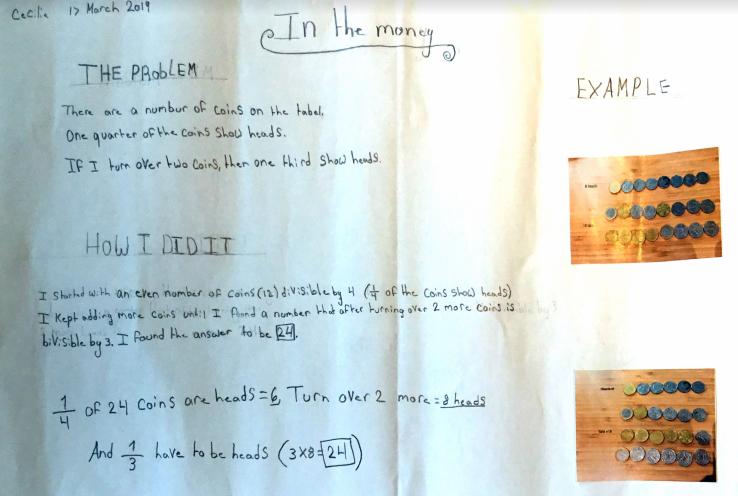 Cecilie 17 March 2019
In the money
THE PROBLEM
There are a numbur of coins on the tabel,
One quarter of the coins show heads.
If I turn over two coins, then one third show heads.
EXAMPLE
HOW I DID IT
I started with an even number of coins (12) divisible by 4 (1/4 of the coins show heads)
I kept adding more coins until I found a number that after turning over 2 more coins is
bivisible by 3. I found the answer to be 24.
1/4 of 24 coins are heads = 6, Turn over 2 more = 8 heads
And 1/3 have to be heads (3x8=24)